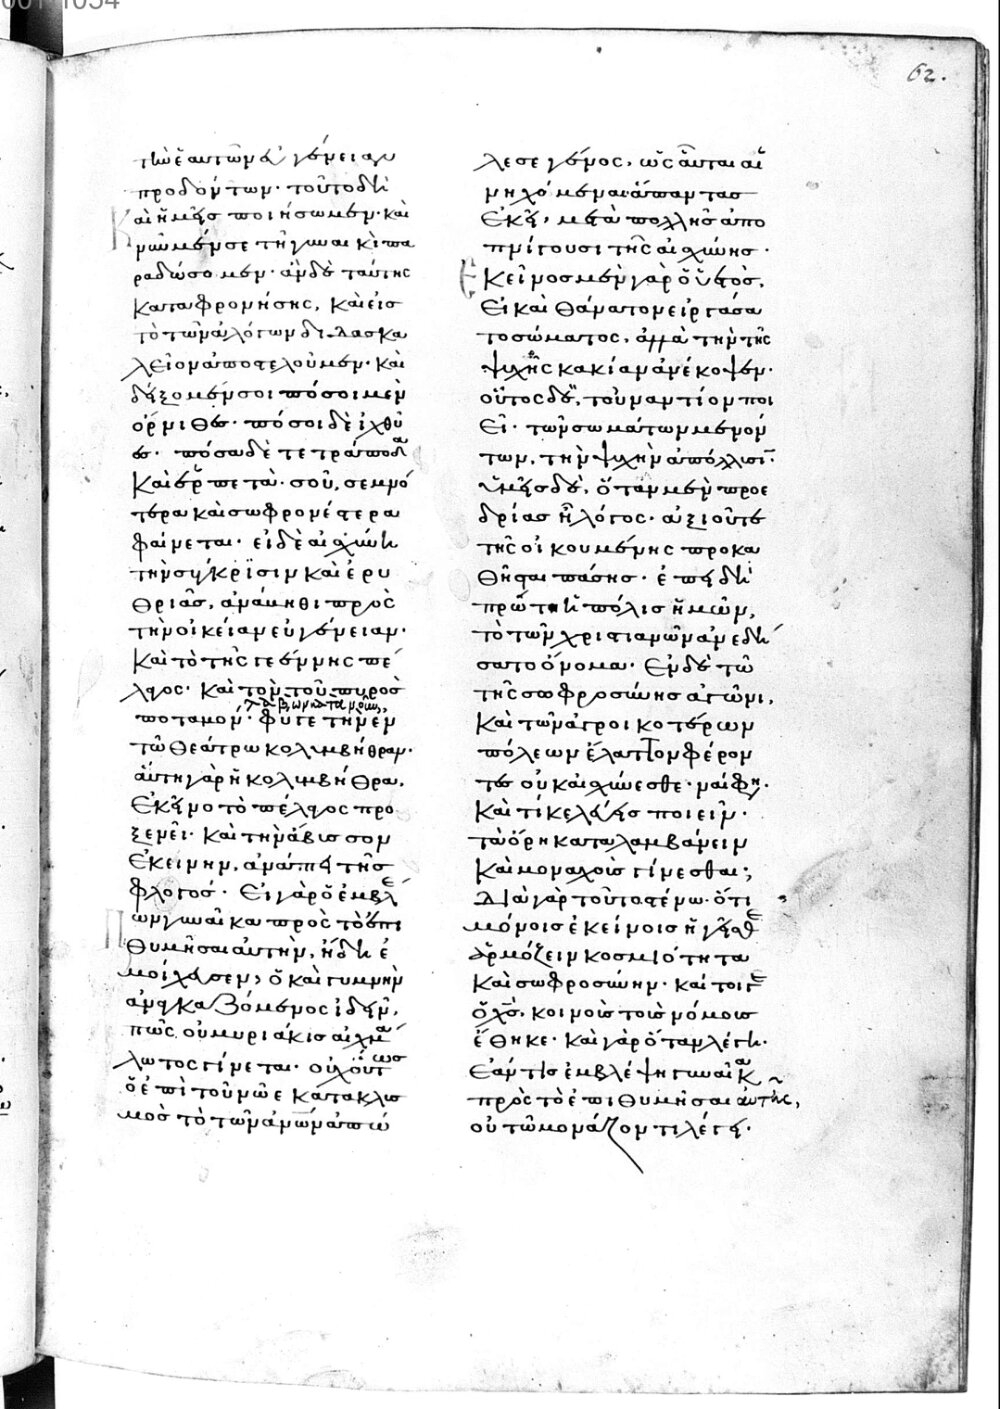 62.
τὴν ἑαυτῶν εὐγένειαν
προδόντων. τοῦτο δὴ
καὶ ἡμεῖς ποιήσωμεν. καὶ
κρινῶμέν σε τῇ γυναικὶ πα
ραδώσομεν. ἂν δὲ ταύτης
καταφρονήσῃς, καὶ εἰς
τὸ τῶν ἀλόγων διδασκα
λεῖον ἀποστελοῦμεν. καὶ
δείξομέν σοι πόσοι μὲν
ὄρνιθες. πόσοι δὲ ἰχθύ
ες. πόσα δὲ τετράποδα
καὶ ἑρπετὰ. σοῦ, σεμνό
τερα καὶ σωφρονέστερα
φαίνεται. εἰ δὲ αἰσχύνη
τὴν σύγκρισιν καὶ ἐρυ
θριᾶς, ἀνάμνηθι πρὸς
τὴν οἰκείαν εὐγένειαν.
καὶ τὸ τῆς γεέννης πέ
λαγος. καὶ τὸν τοῦ πυρὸς
ποταμὸν. φύγε τὴν ἐν
τῷ θεάτρω κολυμβήθραν.
αὕτη γὰρ ἡ κολυμβήθρα,
ἐκεῖνο τὸ πέλαγος προ
ξενεῖ. καὶ τὴν ἄβυσσον
ἐκείνην, ἀνάπτει τῆς
φλογός. Εἰ γὰρ ὁ ἐμβλέ
πων γυναῖκα πρὸς τὸ ἐπι
θυμῆσαι αὐτὴν, ἤδη ἐ
μοίχευσεν, ὁ καὶ γυμνὴν
ἀναγκαζόμενος ἰδεῖν,
πῶς οὐ μυριάκις αἰχμά
λωτος γίνεται. οὐχ οὕτως
ὁ ἐπὶ τοῦ νῶε κατακλυσ
μὸς τὸ τῶν ἀνων ἀπώ
λεσε γένος, ὡς αὗται αἱ
νηχόμεναι ἅπαντας
ἐκεῖ, μετὰ πολλῆς ἀπο
πνίγουσι τῆς αἰσχύνης.
Ἐκεῖνος μὲν γὰρ ὁ ὑετὸς,
εἰ καὶ θάνατον εἰργάσα
το σώματος, ἀλλὰ τὴν τῆς
ψυχῆς κακίαν ἀνέκοψεν.
οὗτος δὲ, τοὐναντίον ποι
εῖ. τῶν σωμάτων μενόν
των, τὴν ψυχὴν ἀπόλλυσι.
ὑμεῖς δὲ, ὅταν μὲν προε
δρίας ἦ λόγος. ἀξιοῦτε
τῆς οἰκουμένης προκα
θῆσθαι πάσης. ἐπειδὴ
πρώτη ἡ πόλις ἡμῶν,
τὸ τῶν χριστιανῶν ἀνεδή
σατο ὄνομα. ἐν δὲ τῶ
τῆς σωφροσύνης ἀγῶνι,
καὶ τῶν ἀγροικοτέρων
πόλεων ἔλαττον φέρον
τες οὐκ αἰσχύνεσθε. ναί φη.
καὶ τί κελεύεις ποιεῖν.
τὰ ὄρη καταλαμβάνειν
καὶ μοναχοὶς γίνεσθαι;
Διὰ γὰρ τοῦτο στένω. ὅτι
μόνοις ἐκείνοις ἡγεῖσθε
ἁρμόζειν κοσμιότητα
καὶ σωφροσύνην. καίτοιγε
ὁ χς, κοινοὺς τοὺς νόμους
ἔθηκε. καὶ γὰρ ὅταν λέγη.
ἐάν τις ἐμβλέψη γυναῖκα
πρὸς τὸ ἐπιθυμῆσαι αὐτῆς,
οὐ τῶ μονάζοντι λέγει.